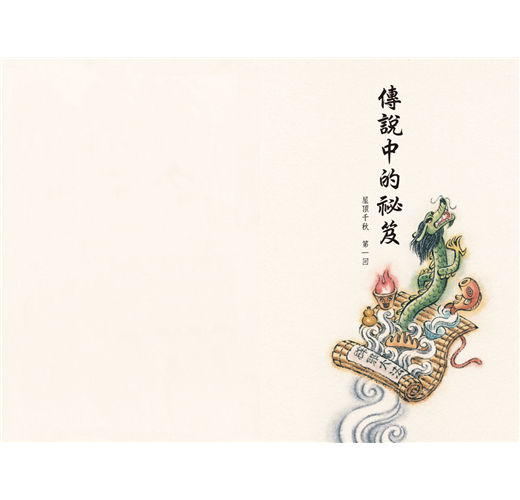 傳說中的祕笈
屋頂千秋 第一回